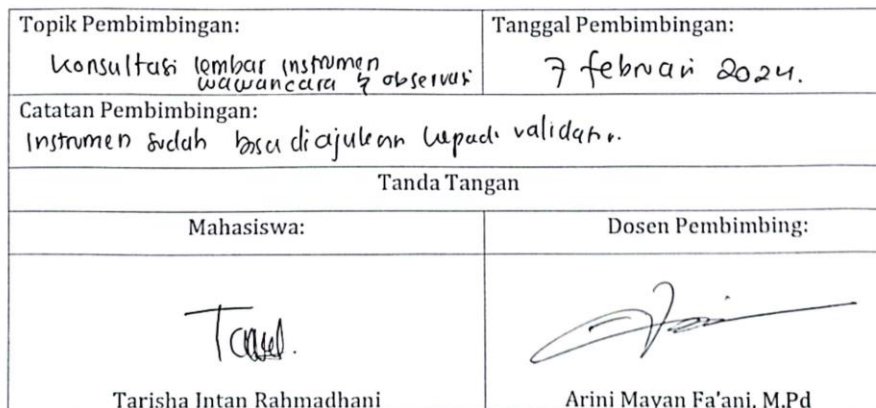 Topik Pembimbingan:
Konsultasi lembar instrumen
wawancara & observasi
Tanggal Pembimbingan:
7 februari 2024.
Catatan Pembimbingan:
Instrumen sudah bisa diajukan kepada validator.
Tanda Tangan
Mahasiswa:
Dosen Pembimbing:
Tarisha Intan Rahmadhani
Arini Mayan Fa'ani, M.Pd